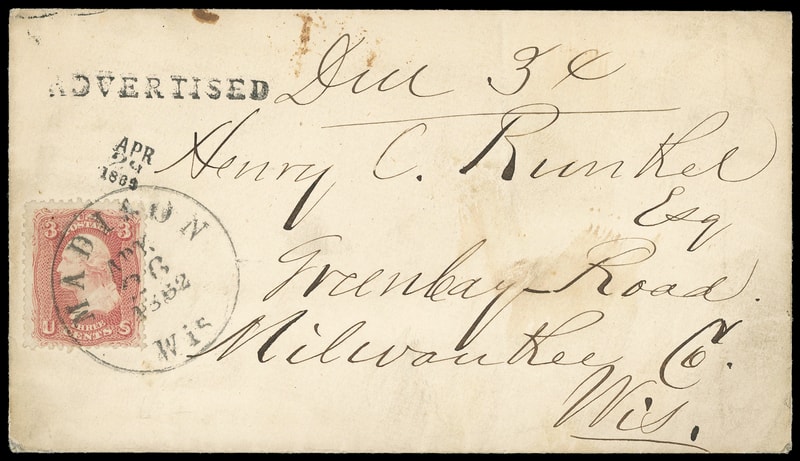 ADVERTISED
Due 3¢
APR
1862
Henry C. Runkel
Esq
Greenbay Road.
Milwaukee Co.
Wis.
MADISON
APR.
26
1862
Wis
3 3
U.S.
POSTAGE
THREE
U CENTS S